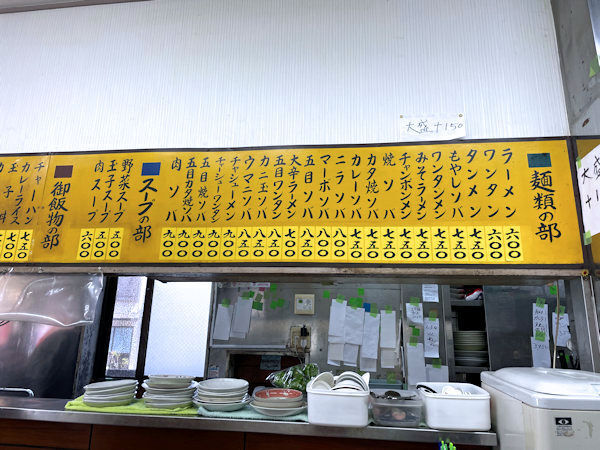 大盛+150
麺類の部
ラーメン 六〇〇
ワンタン 六〇〇
タンメン 七五〇
もやしソバ 七五〇
ワンタンメン 七五〇
みそラーメン 七五〇
チャンポンメン 九〇〇
焼ソバ 七五〇
カタ焼ソバ 七五〇
カレーソバ 七五〇
ニラソバ 七五〇
マーボソバ 八〇〇
五目ソバ 八〇〇
大辛ラーメン 七〇〇
五目ワンタン 八〇〇
カニ玉ソバ 八〇〇
ウマニソバ 八五〇
チャシューメン 九〇〇
チャシューワンタン 九〇〇
五目焼ソバ 九〇〇
五目カタ焼ソバ 九〇〇
肉ソバ 九〇〇
スープの部
野菜スープ 五五〇
玉子スープ 五五〇
肉スープ 六〇〇
御飯物の部
チャーハン 七五〇
カレーライス 七〇〇
大盛